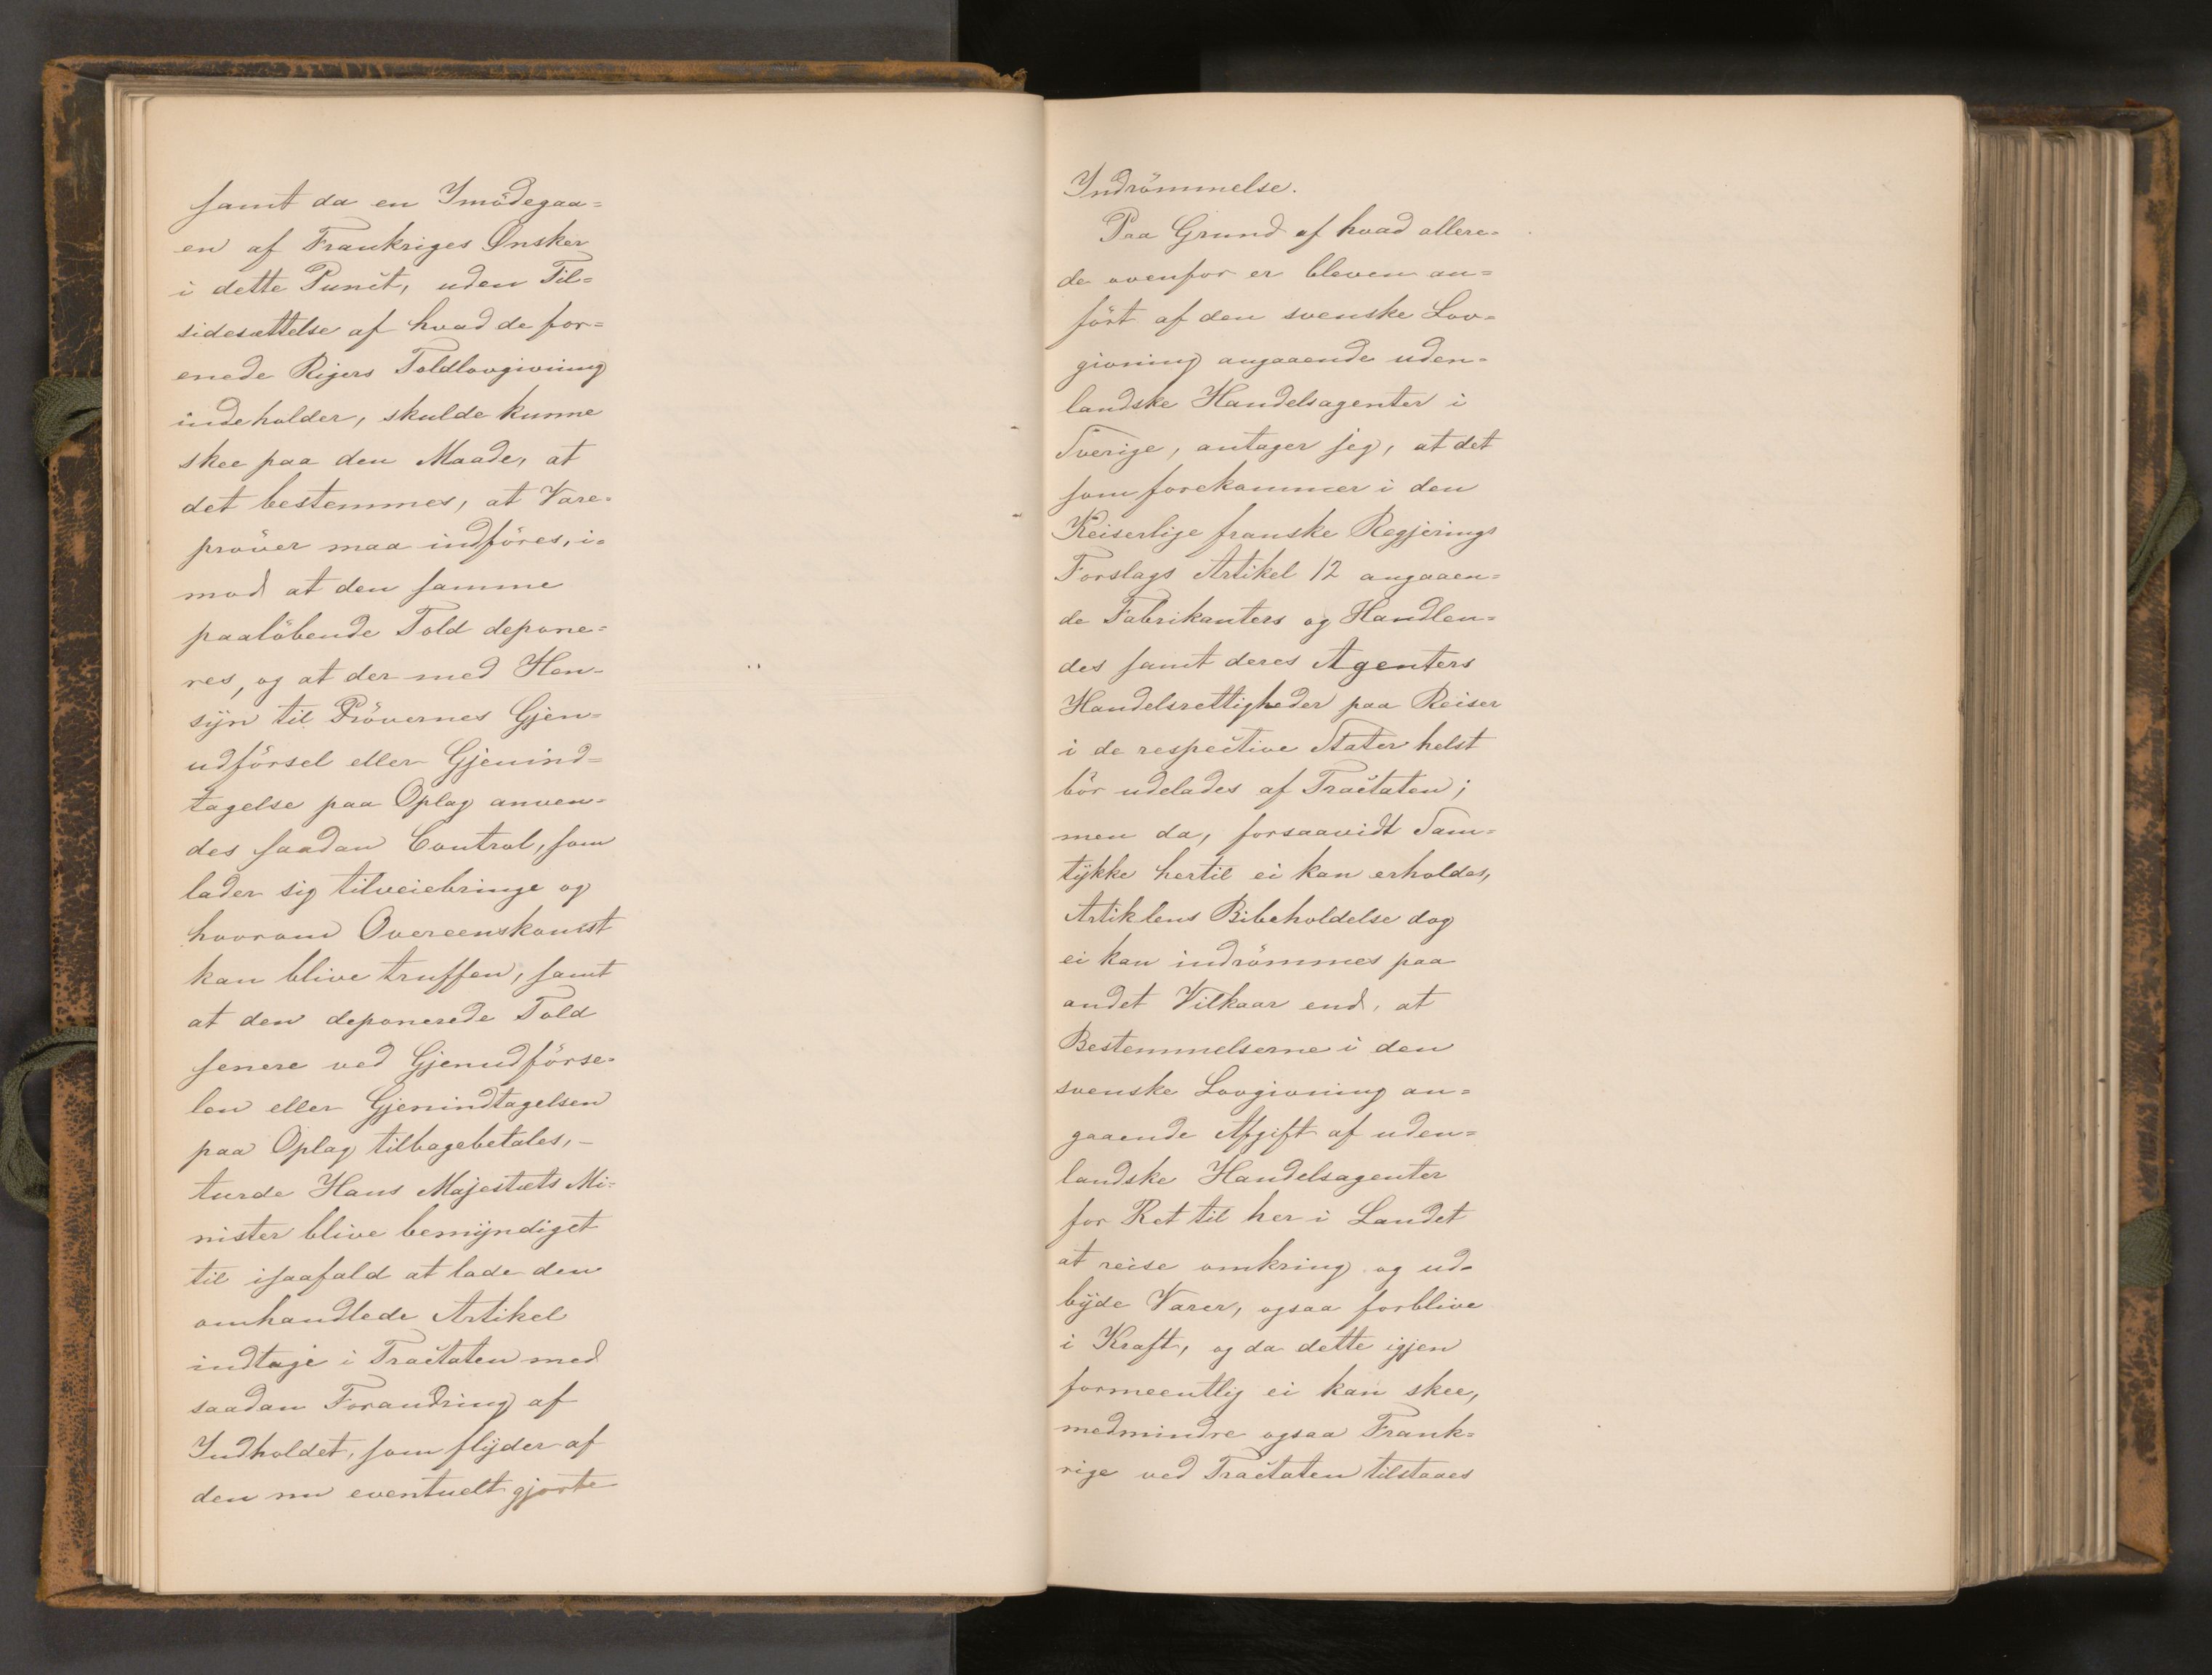 samt da en Imödegaa=
en af Frankriges Ønsker
i dette Punct, uden Til=
sidesættelse af hvad de for=
enede Rigers Toldlovgivning
indeholder, skulde kunne
skee paa den Maade, at
det bestemmes, at Vare=
pröver maa indföres, i=
mod at den samme
paalöbende Told depone=
res, og at der med Hen=
syn til Prövernes Gjen=
udförsel eller Gjenind=
tagelse paa Oplag anven=
des saadan Control, som
lader sig tilveiebringe og
hvorom Overeenskomst
kan blive truffen, samt
at den deponerede Told
senere ved Gjenudförse=
len eller Gjenindtagelsen
paa Oplag tilbagebetales, –
turde Hans Majestæts Mi=
nister blive bemyndiget
til isaafald at lade den
omhandlede Artikel
indtage i Tractaten med
saadan Forandring af
Indholdet, som flyder af
den nu eventuelt gjorte
Indrömmelse.
Paa Grund af hvad allere=
de ovenfor er bleven an=
fört af den svenske Lov=
givning angaaende uden=
landske Handelsagenter i
Sverige, antager jeg, at det
som forekommer i den
Keiserlige franske Regjerings
Forslags Artikel 12 angaaen=
de Fabrikanters og Handlen=
des samt deres Agenters
Handelsrettigheder paa Reiser
i de respective Stater helst
bör udelades af Tractaten;
men da, forsaavidt Sam=
tykke hertil ei kan erholdes,
Artiklens Bibeholdelse dog
ei kan indrömmes paa
andet Vilkaar end, at
Bestemmelserne i den
svenske Lovgivning an=
gaaende Afgift af uden=
landske Handelsagenter
for Ret til her i Landet
at reise omkring og ud=
byde Varer, ogsaa forblive
i Kraft, og da dette igjen
formeentlig ei kan skee,
medmindre ogsaa Frank=
rige ved Tractaten tilstaaes